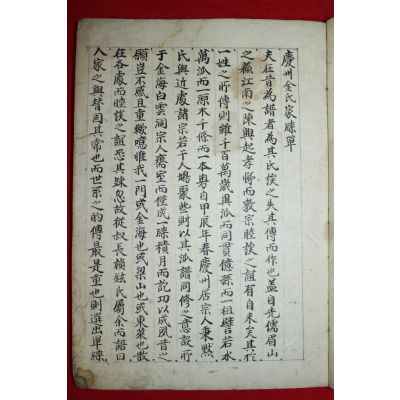 慶州金氏家牒單
夫在昔為譜者為其氏族之失其傳而作也盖自先儒眉山
之蘇江南之陳興起孝悌而敦宗睦族之誼有自来矣其於
一姓之所傳則雖千百萬歲與派而同貫億源而一祖譬若水
萬派而一源木千條而一本粤自甲辰年春慶州居宗人秉默
氏與近處諸宗若干人塢聚些財以其派譜同修之意設所
于金海白雲洞宗人喬室而僅成一牒積月而訖功以成夙昔之
願豈不感且重歟噫惟我一門或金海也或梁山也或東萊也散
在各處而睦族之誼恐其踈忽故從叔長禎鉉氏屬余而語曰
人家之興替固其常也而世系之的傳最是重也則選出單牒